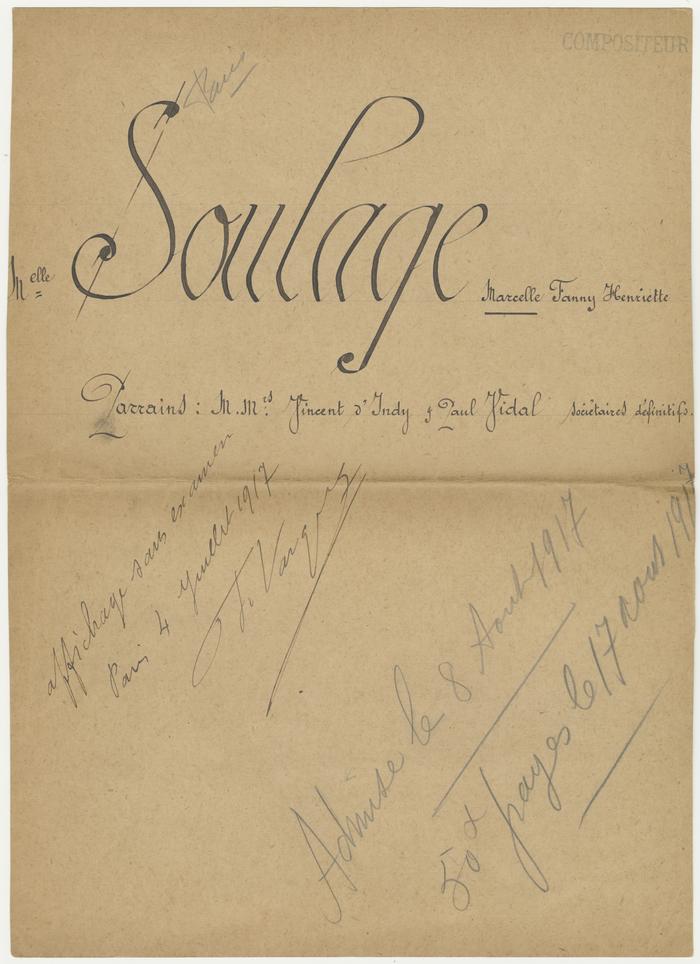 COMPOSITEUR
Paris
Melle Soulage Marcelle Fanny Henriette
Parrains : M.Mrs Vincent d'Indy & Paul Vidal sociétaires définitifs.
affichage sans examen
Paris 4 Juillet 1917
Admise le 8 Aout 1917
50x payés le 17 aout 1917